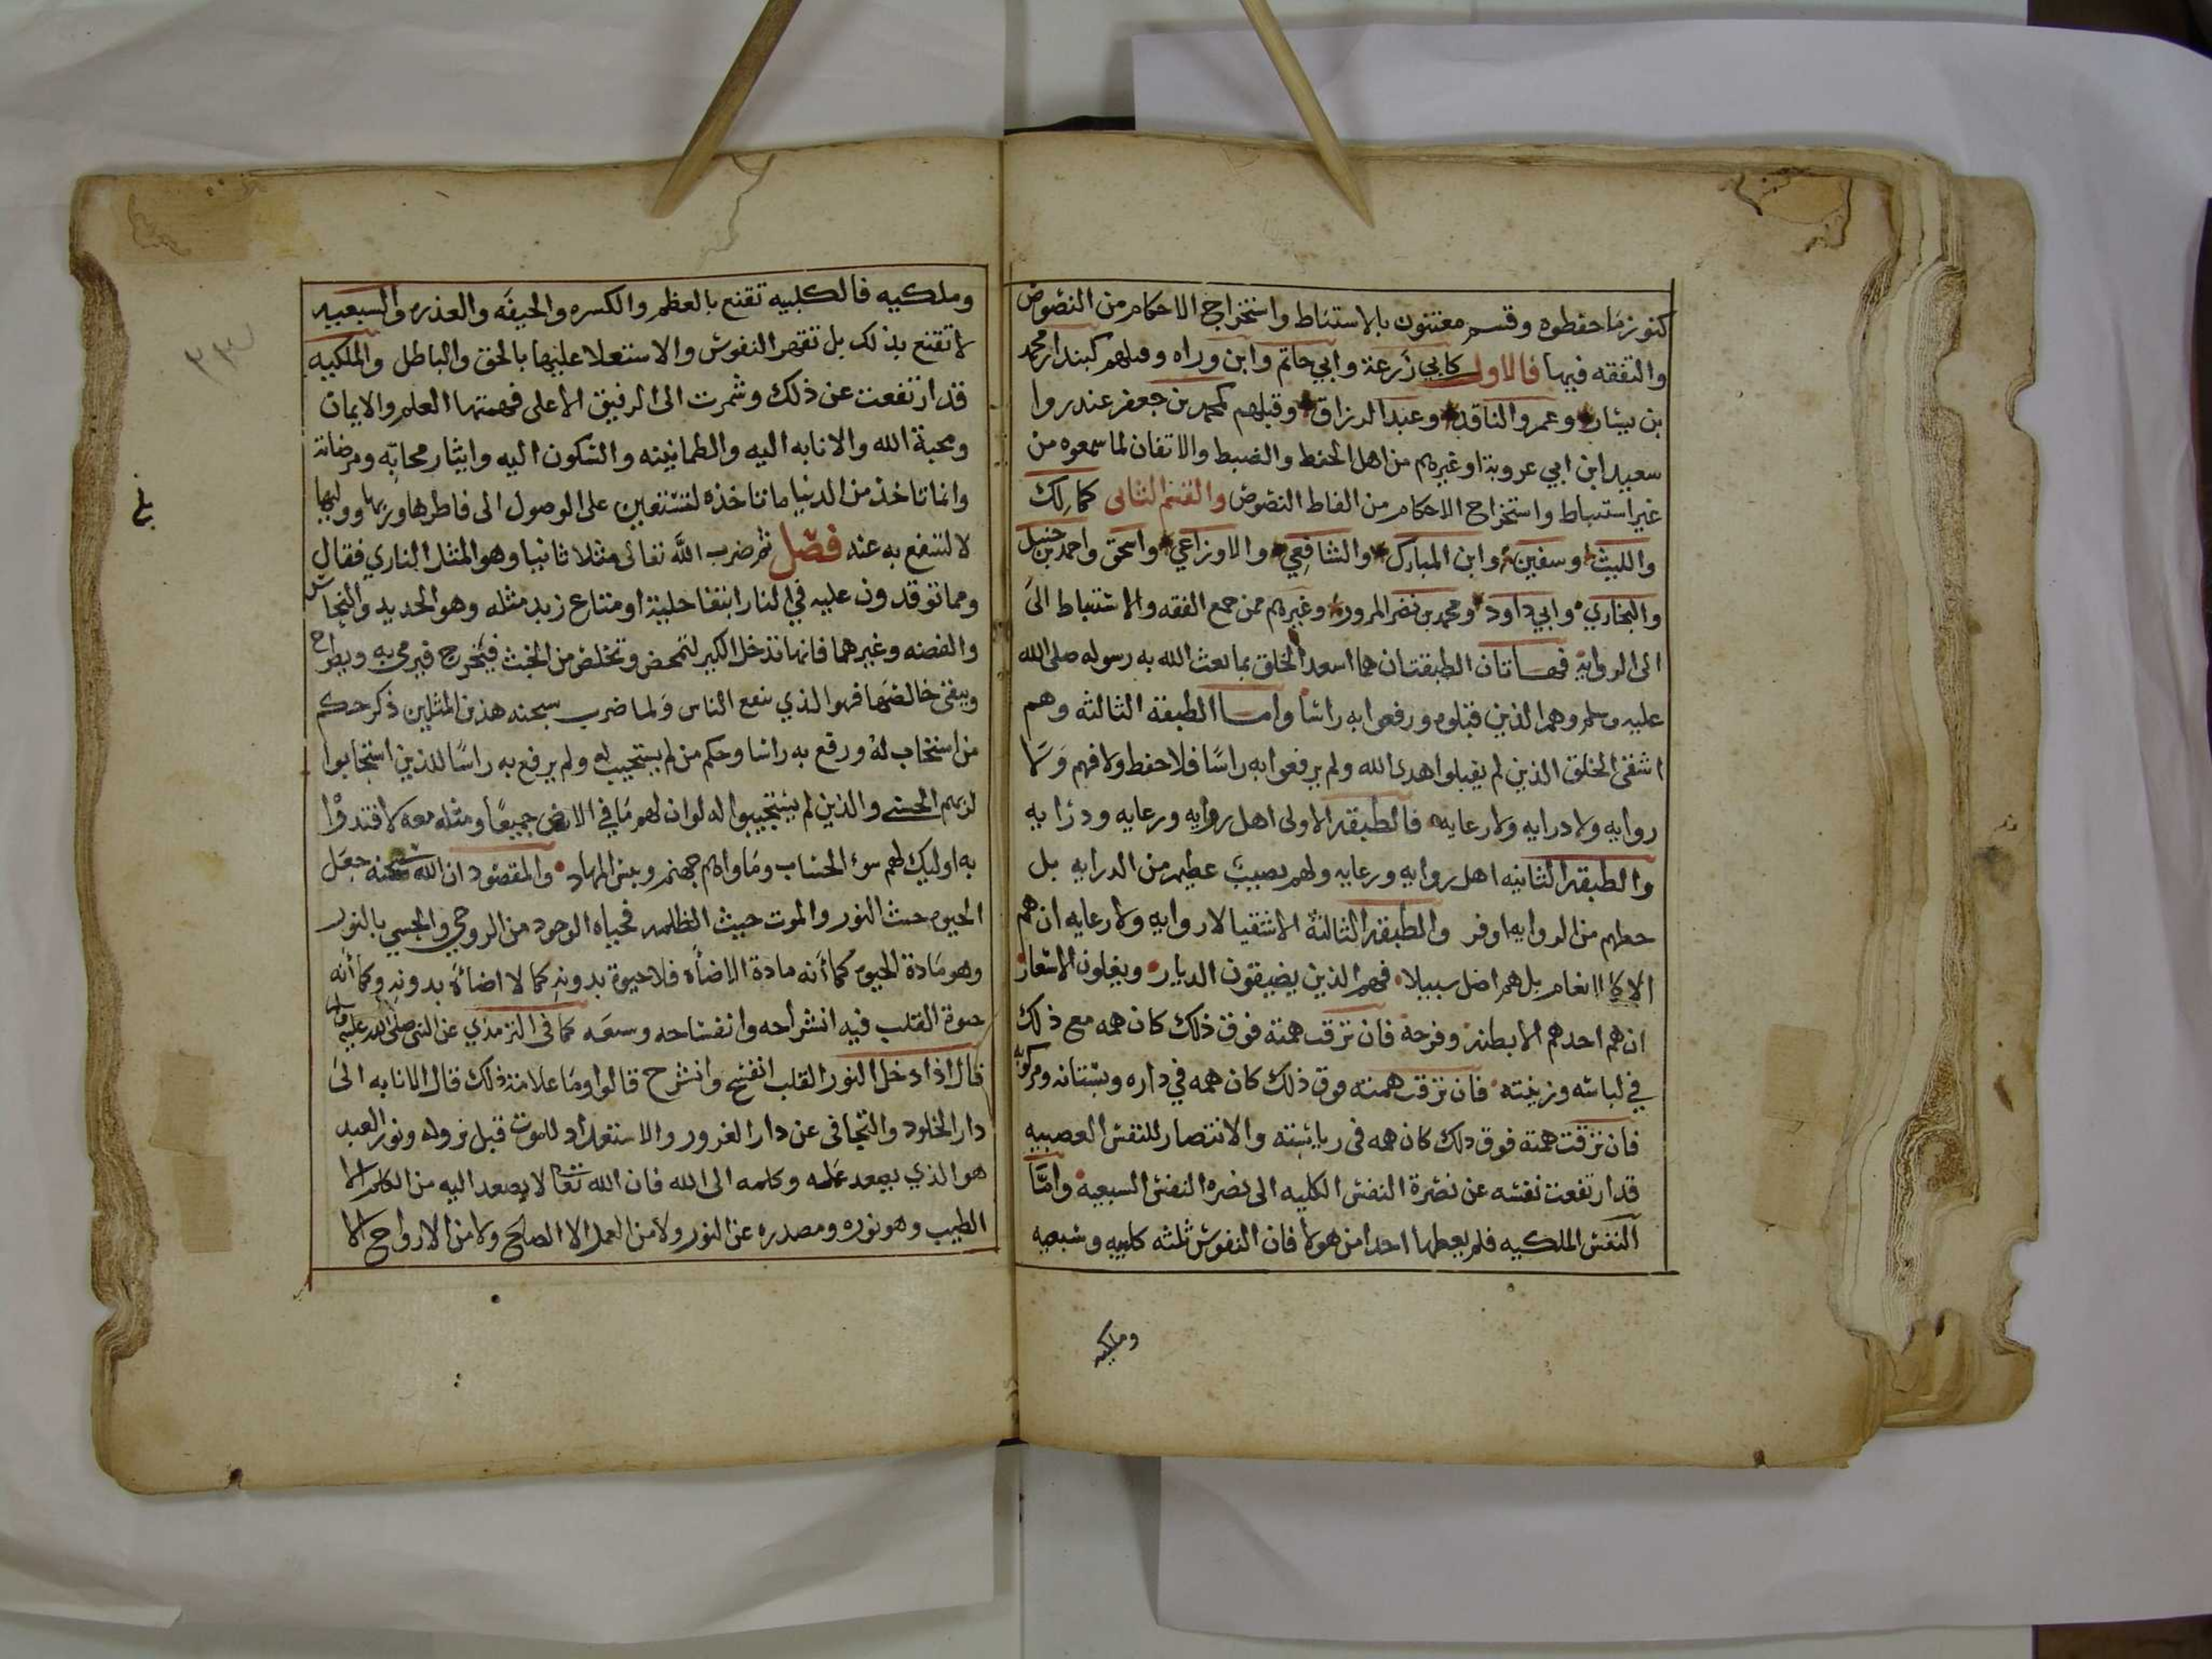 كنوز ما حفظوه وقسم معتنون بالاستنباط واستخراج الاحكام من النصوص
والتفقه فيها فالاول كابي زرعة وابي حاتم وابن وراه وقبلهم كبندار محمد
بن بشار وعمرو الناقد وعبد الرزاق وقبلهم كمحمد بن جعفر غندر وا
سعيد ابن ابي عروبة وغيرهم من اهل الحفظ والضبط والاتقان لما سمعوه من
غير استنباط واستخراج الاحكام من الفاظ النصوص والقسم الثاني كمالك
والليث وسفين وابن المبارك والشافعي والاوزاعي واسحق واحمد بن حنبل
والبخاري وابي داود ومحمد بن نصر المروزي وغيرهم ممن جمع الفقه والاستنباط الى
الى الرواية فهاتان الطبقتان هما اسعد الخلق بما بعث الله به رسوله صلى الله
عليه وسلم وهم الذين قبلوه ورفعوا به راسا واما الطبقة الثالثه وهم
اشقى الخلق الذين لم يقبلوا هدى الله ولم يرفعوا به راسا فلا حفظ ولا فهم ولا
روايه ولا درايه ولا رعايه فالطبقه الاولى اهل روايه ورعايه ودرايه
والطبقه الثانيه اهل روايه ورعايه ولهم نصيب عظيم من الدرايه بل
حظهم من الروايه اوفر والطبقه الثالثة الاشقيا لا روايه ولا رعايه ان هم
الا كالانعام بل هم اضل سبيلا فهم الذين يضيقون الديار ويغلون الاسعار
ان هم احدهم الا بطنه وفرجه فان ترقت همته فوق ذلك كان همه مع ذلك
في لباسه وزينته فان ترقت همته فوق ذلك كان همه في داره وبستانه ومركوبه
فان ترقت همته فوق ذلك كان همه في رياسته والانتصار للنفس الغضبيه
قد ارتفعت نفسه عن نصرة النفس الكلبيه الى نصره النفس السبعيه واما
النفس الملكيه فلم يعطها احد من هولا فان النفوس ثلثه كلبيه وسبعيه
وملكيه
وملكيه فالكلبيه تقنع بالعظم والكسره والجيفه والعذره والسبعيه
لا تقنع بذلك بل تقهر النفوس والاستعلا عليها بالحق والباطل والملكيه
قد ارتفعت عن ذلك وشمرت الى الرفيق الاعلى فهمتها العلم والايمان
ومحبة الله والانابه اليه والطمانينه والسكون اليه وايثار محابه ومرضاته
وانما تاخذ من الدنيا ما تاخذه لتستعين على الوصول الى فاطرها وربها ووليها
لا لتنقطع به عنه فصل ثم ضرب الله تعالى مثلا ثانيا وهو المثل الناري فقال
ومما توقدون عليه في النار ابتغا حلية او متاع زبد مثله وهو الحديد والنحاس
والفضه وغيرهما فانها تدخل الكير لتمحص وتخلص من الخبث فيخرج فيرمى به ويطرح
ويبقى خالصها فهو الذي ينفع الناس ولما ضرب سبحنه هذين المثلين ذكر حكم
من استجاب له ورفع به راسا وحكم من لم يستجيب له ولم يرفع به راسا للذين استجابوا
لربهم الحسنى والذين لم يستجيبوا له لو ان لهم ما في الارض جميعا ومثله معه لافتدوا
به اوليك لهم سوء الحساب وماواهم جهنم وبيس المهاد والمقصود ان الله سبحنه جعل
الحيوة حيث النور والموت حيث الظلمه فحياه الوجود من الروحي والجسمي بالنور
وهو مادة الحيوة كما أنه مادة الاضأه فلا حيوة بدونه كما لا اضأة بدونه وكما أنه
حيوة القلب فيه انشراحه وانفساحه وسعته كما في الترمذي عن النبي صلى الله عليه وسلم
قال اذا دخل النور القلب انفسح وانشرح قالوا وما علامة ذلك قال الانابه الى
دار الخلود والتجافى عن دار الغرور والاستعداد للموت قبل نزوله ونور العبد
هو الذي يصعد عمله وكلمه الى الله فان الله تعا لا يصعد اليه من الكلم الا
الطيب وهو نوره ومصدره عن النور ولا من العمل الا الصالح ولا من الارواح الا